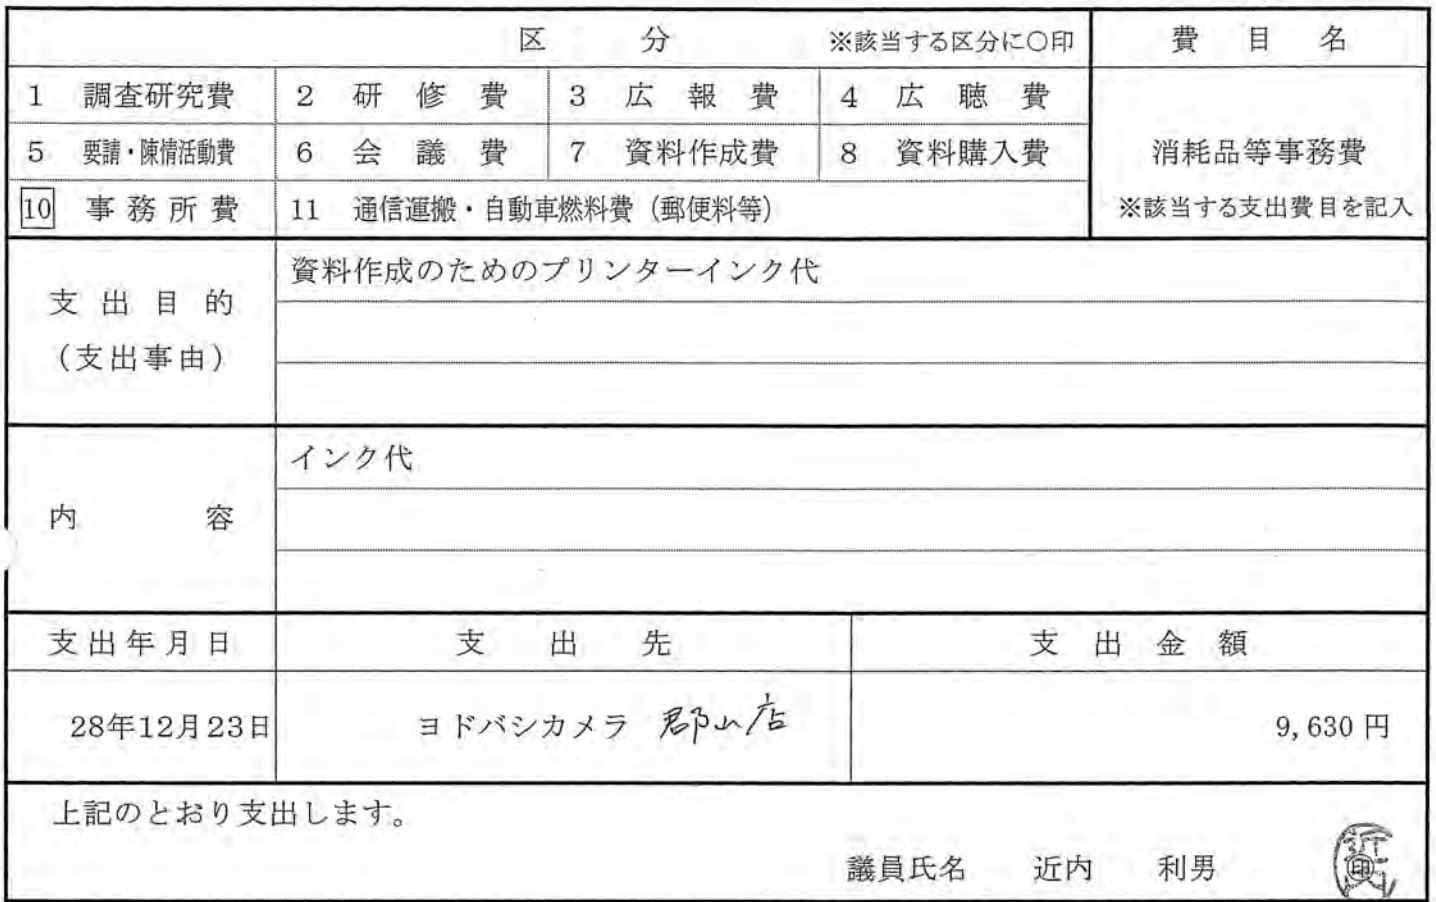 区 分 ※該当する区分に○印 費目名
1 調査研究費 2 研修費 3 広報費 4 広聴費
5 要請・陳情活動費 6 会議費 7 資料作成費 8 資料購入費 消耗品等事務費
10 事務所費 11 通信運搬・自動車燃料費（郵便料等） ※該当する支出費目を記入
支出目的
（支出事由）
資料作成のためのプリンターインク代
内 容
インク代
支出年月日 支出先 支出金額
28年12月23日 ヨドバシカメラ 郡山店 9,630円
上記のとおり支出します。
議員氏名 近内 利男 印